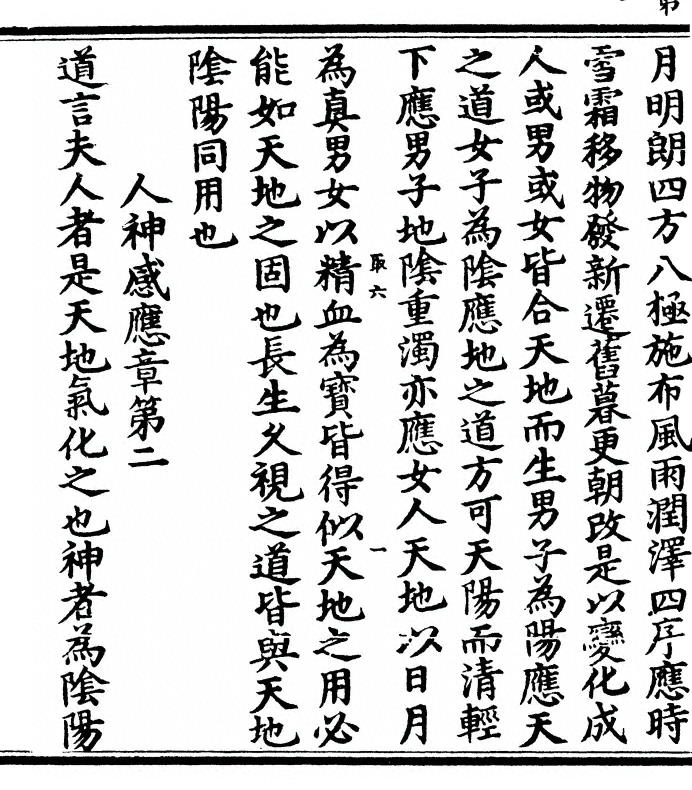 第
月明朗四方八極施布風雨潤澤四序應時
雪霜移物發新遷舊暮更朝改是以變化成
人或男或女皆合天地而生男子為陽應天
之道女子為陰應地之道方可天陽而清輕
下應男子地陰重濁亦應女人天地以日月
取六
一
為真男女以精血為寶皆得似天地之用必
能如天地之固也長生久視之道皆與天地
陰陽同用也
人神感應章第二
道言夫人者是天地氣化之也神者為陰陽